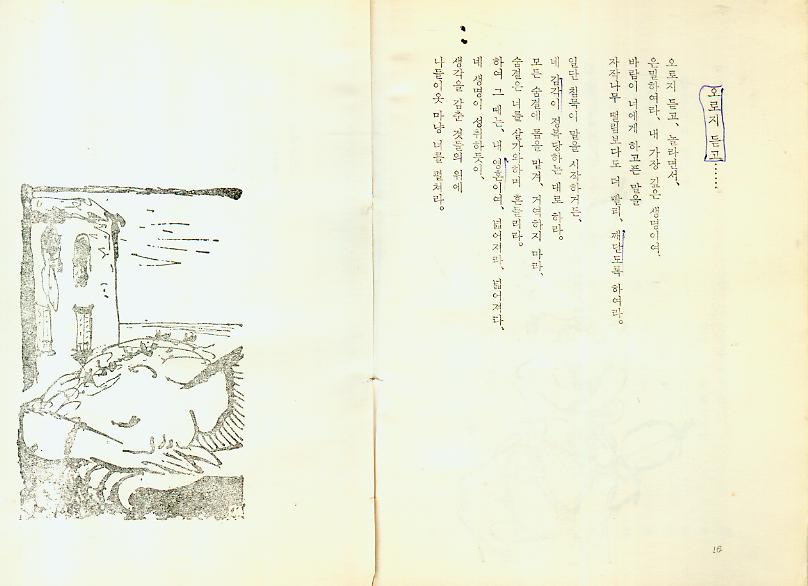 오로지 듣고……
오로지 듣고, 놀라면서,
은밀하여라, 내 가장 깊은 생명이여.
바람이 너에게 하고픈 말을
자작나무 떨림보다도 더 빨리, 깨닫도록 하여라.
일단 침묵이 말을 시작하거든,
네 감각이 정복당하는 대로 하라.
모든 숨결에 몸을 맡겨, 거역하지 마라,
숨결은 너를 살가와하며 흔들리라.
하여 그 때는, 내 영혼이여, 넓어져라, 넓어져다,
네 생명이 성취하듯이,
생각을 갖춘 것들의 위에
나들이옷 마냥 너를 펼쳐라.